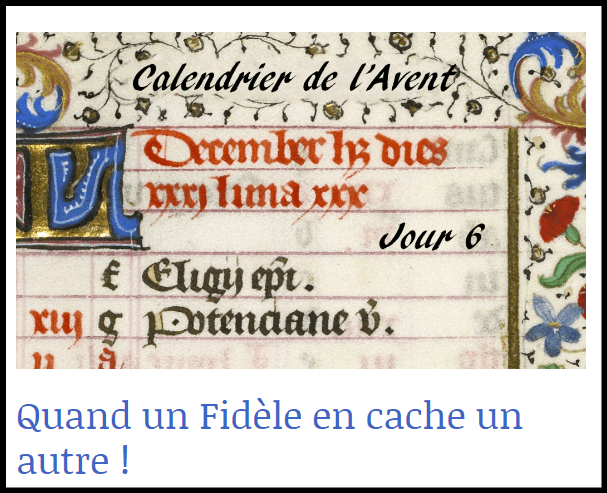 Calendrier de l'Avent
December hꝫ dies
xxxj luna xxx
Jour 6
f Eligij ep̅i.
xiij g Potenciane v̅.
Quand un Fidèle en cache un
autre !